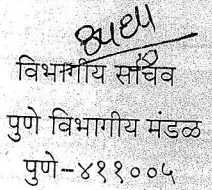 विभागीय सचिव
पुणे विभागीय मंडळ
पुणे-४११००५